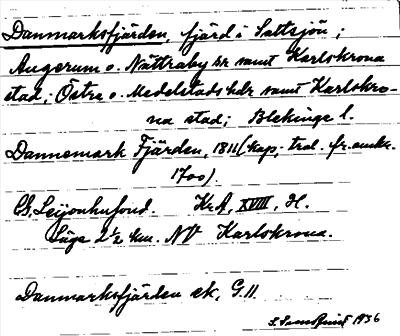 Danmarksfjärden, fjärd i Saltsjön;
Augerum o. Nättraby sr samt Karlskrona
stad; Östra o. Medelstads hdr samt Karlskro-
na stad; Blekinge l.
Dannemark Fjärden, 1811 (kop.; trol. fr. omkr.
1700).
CG. Leijonhufvud. Kr.A, XVIII, H.
Läge 2½ km. NV Karlskrona.
Danmarksfjärden ek, G.11.
1936